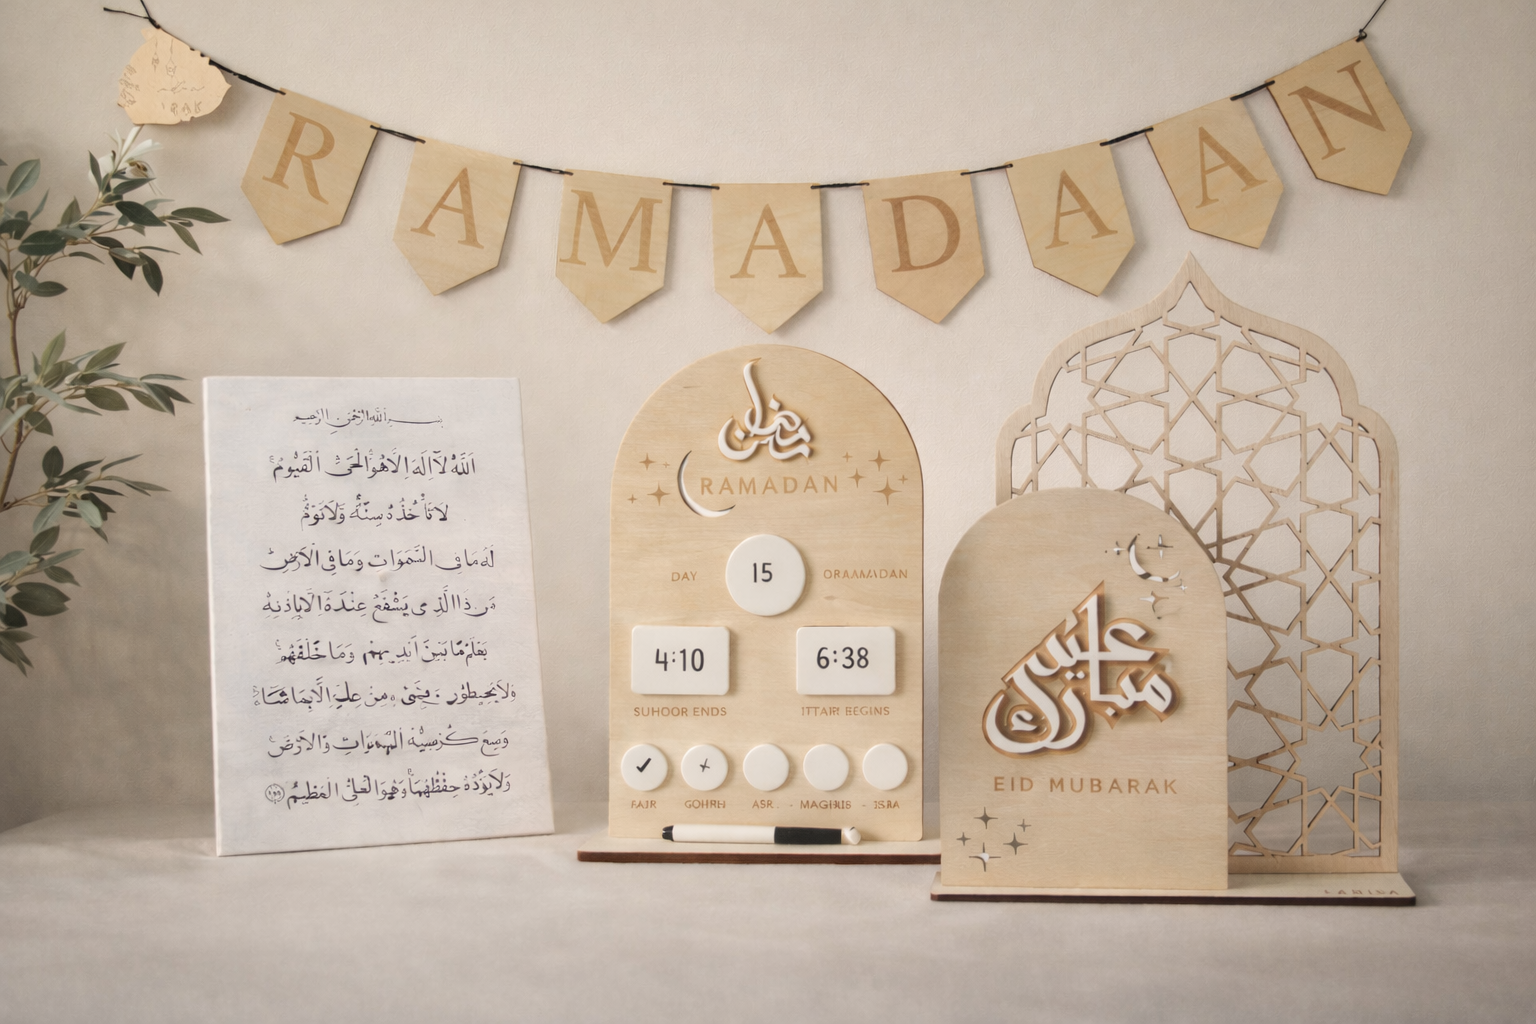 RAMADAAN
بسم الله الرحمن الرحيم
اَللّٰهُ لَآ اِلٰهَ اِلَّا هُوَ الْحَىُّ الْقَيُّومُ
لَا تَأْخُذُهُ سِنَةٌ وَّلَا نَوْمٌ
لَهُ مَا فِى السَّمٰوَات وَمَا فِى الْاَرْضِ
مَن ذَا الَّذِى يَشْفَعُ عِنْدَهٗ اِلَّا بِاِذْنِهٖ
يَعْلَمُ مَا بَيْنَ اَيْدِيهِمْ وَمَا خَلْفَهُمْ
وَلَا يُحِيطُونَ مِنْ عِلْمِهٖ اِلَّا بِمَا شَآءَ
وَسِعَ كُرْسِيُّهُ السَّمٰوَاتِ وَالْاَرْضَ
وَلَا يَؤُدُهٗ حِفْظُهُمَا وَهُوَ الْعَلِىُّ الْعَظِيمُ
رمضان
RAMADAN
DAY 15 ORAAMADAN
4:10 6:38
SUHOOR ENDS BEGINS
ASR MAGHRIB
عيد مبارك
EID MUBARAK